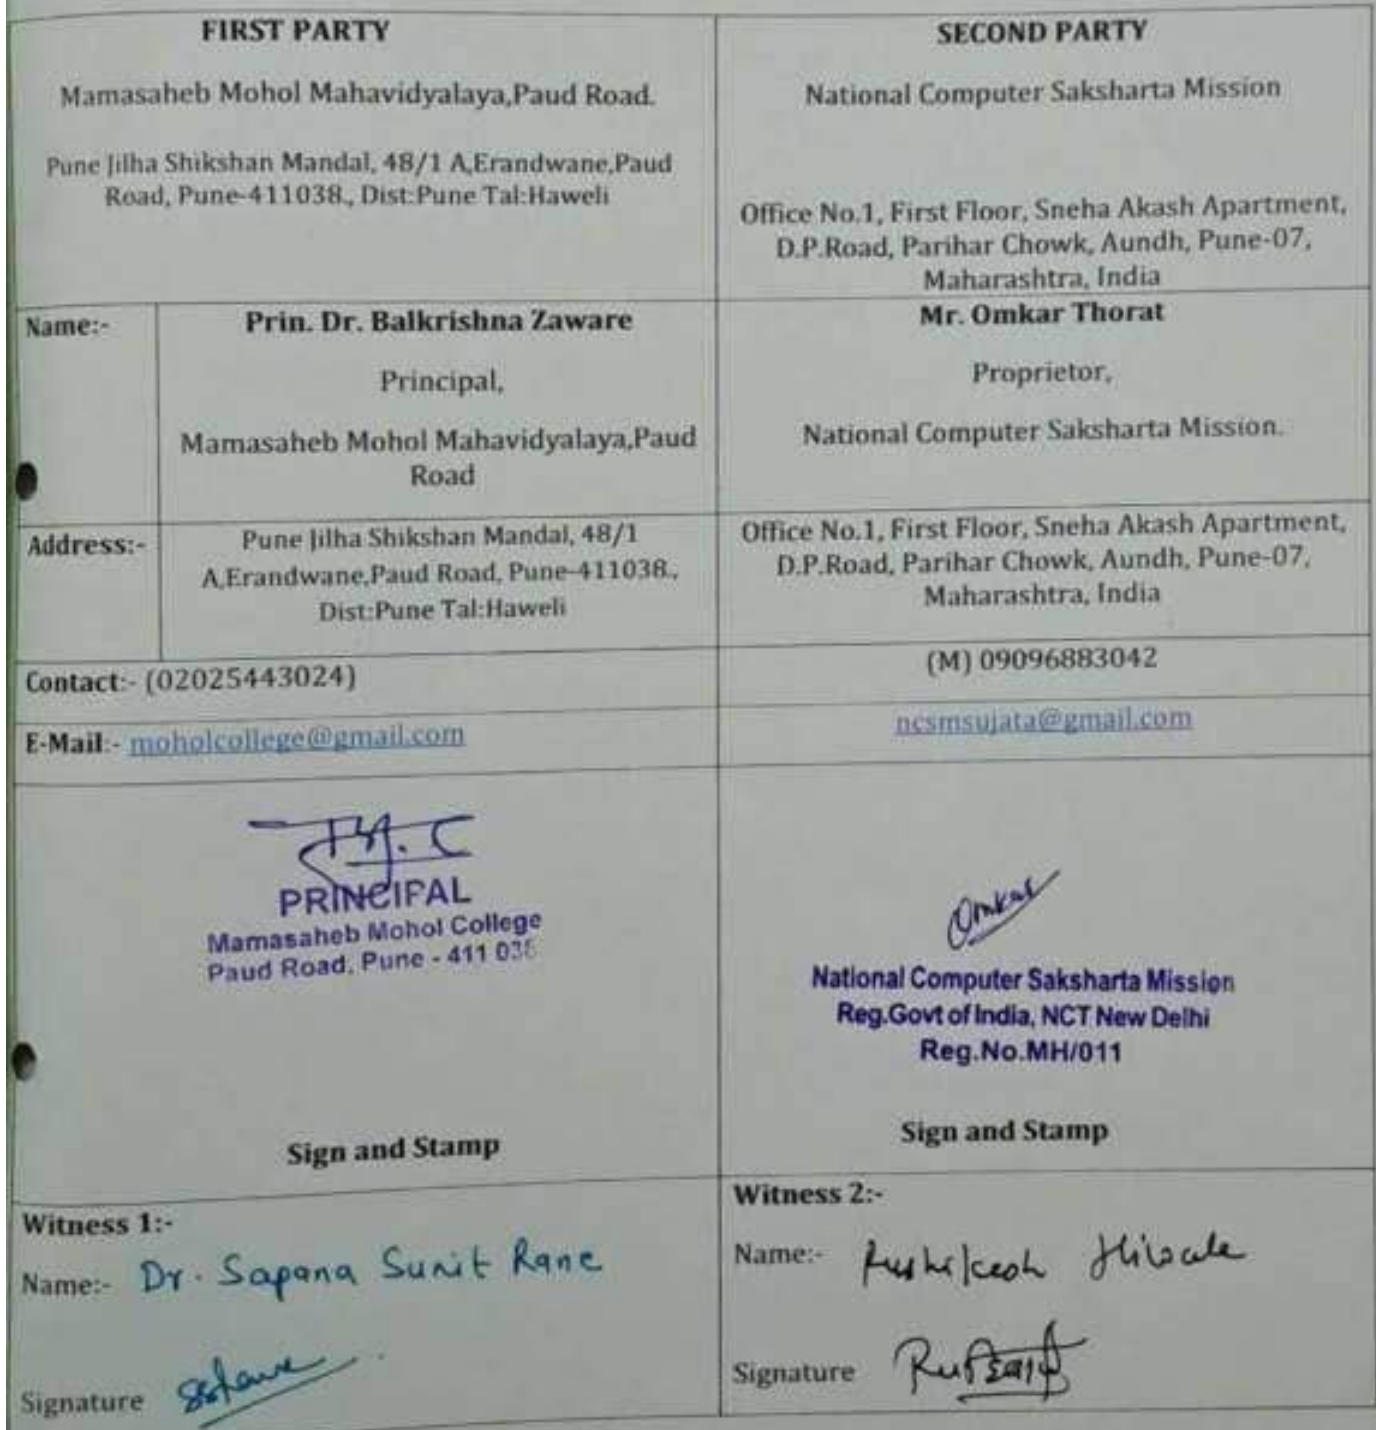 FIRST PARTY
Mamasaheb Mohol Mahavidyalaya,Paud Road.
Pune Jilha Shikshan Mandal, 48/1 A,Erandwane,Paud
Road, Pune-411038., Dist:Pune Tal:Haweli
SECOND PARTY
National Computer Saksharta Mission
Office No.1, First Floor, Sneha Akash Apartment,
D.P.Road, Parihar Chowk, Aundh, Pune-07,
Maharashtra, India
Name:-
Prin. Dr. Balkrishna Zaware
Principal,
Mamasaheb Mohol Mahavidyalaya,Paud
Road
Mr. Omkar Thorat
Proprietor,
National Computer Saksharta Mission.
Address:-
Pune Jilha Shikshan Mandal, 48/1
A,Erandwane,Paud Road, Pune-411038.,
Dist:Pune Tal:Haweli
Office No.1, First Floor, Sneha Akash Apartment,
D.P.Road, Parihar Chowk, Aundh, Pune-07,
Maharashtra, India
Contact:- (02025443024)
(M) 09096883042
E-Mail:- moholcollege@gmail.com
ncsmsujata@gmail.com
PRINCIPAL
Mamasaheb Mohol College
Paud Road, Pune - 411 038
Sign and Stamp
Omkar
National Computer Saksharta Mission
Reg.Govt of India, NCT New Delhi
Reg.No.MH/011
Sign and Stamp
Witness 1:-
Name:- Dr. Sapana Sunit Rane
Signature
Witness 2:-
Name:-
Signature